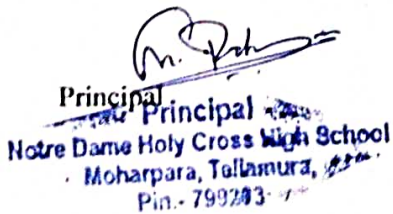 Principal
Principal
Notre Dame Holy Cross High School
Moharpara, Teliamura,
Pin.- 799203